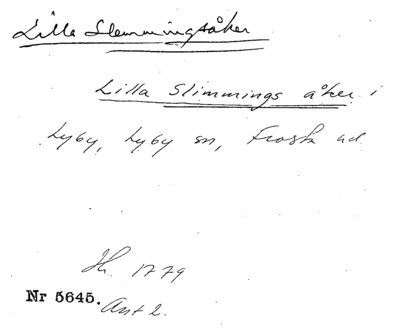 Lilla Slemmingsåker
Lilla Slimmings åker i
Lyby, Lyby sn, Frosta hd.
Hh. 1779
Nr 5645. Ant 2.